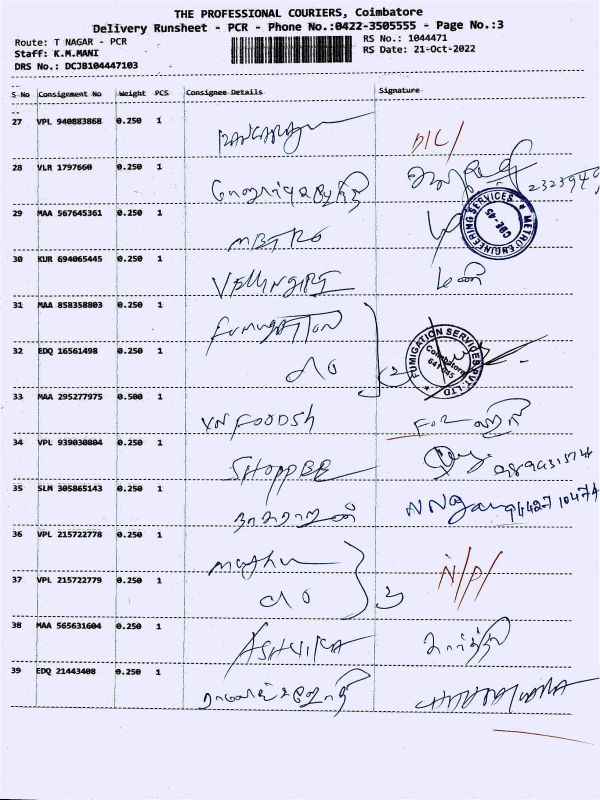 THE PROFESSIONAL COURIERS, Coimbatore
Delivery Runsheet - PCR - Phone No.:0422-3505555 - Page No.:3
Route: T NAGAR - PCR
Staff: K.M.MANI
DRS No.: DCJB104447103
RS No.: 1044471
RS Date: 21-Oct-2022
S No Consignment No Weight PCS Consignee Details Signature
27 VPL 940883868 0.250 1
28 VLR 1797660 0.250 1
29 MAA 567645361 0.250 1 METRO
METRO ENGINEERING SERVICES CBE-45
30 KUR 694065445 0.250 1 VELLINGIRI மணி
31 MAA 858358803 0.250 1 FUMIGATION
32 EDQ 16561498 0.250 1 do 2
FUMIGATION SERVICES PVT. LTD Coimbatore
33 MAA 295277975 0.500 1 VN FOODSH FOR
34 VPL 939030804 0.250 1 SHOPPEE
35 SLM 305865143 0.250 1 நாகராஜன்
36 VPL 215722778 0.250 1
37 VPL 215722779 0.250 1 do 2 N/P/
38 MAA 565631604 0.250 1 ASHVIKA கார்த்தி
39 EDQ 21443408 0.250 1